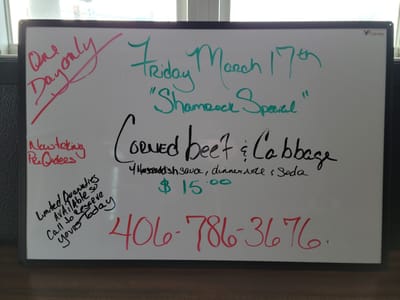 One
Day only
Friday March 17th
"Shamrock Special"
Now taking
PreOrders
Corned beef & Cabbage
sauce, dinner roll & Soda
$ 15.00
Limited Quantities
AVAilable so
Call to Reserve
yours Today
406-786-3676